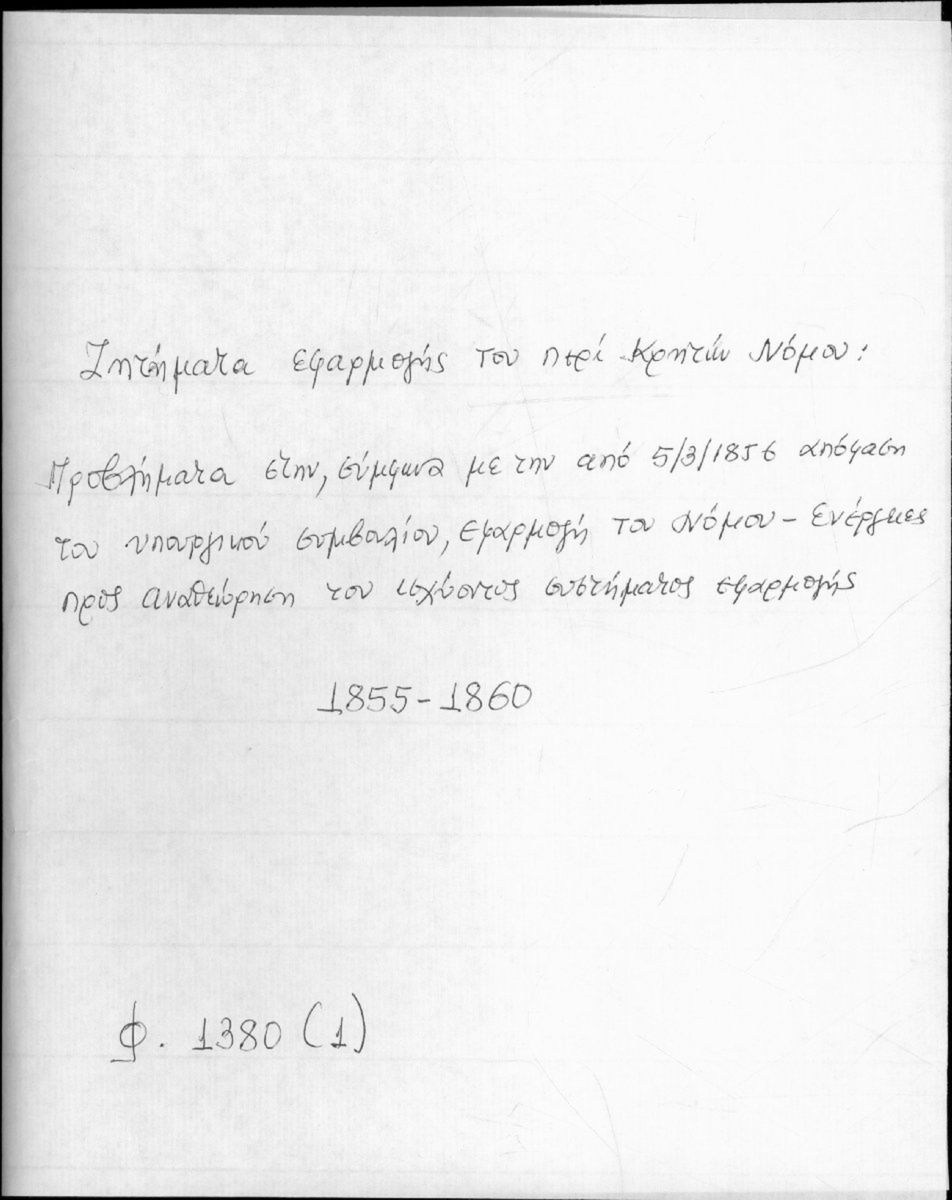 Ζητήματα εφαρμογής του περί Κρητών Νόμου:
Προβλήματα στην, σύμφωνα με την από 5/3/1856 απόφαση
του υπουργικού συμβουλίου, εφαρμογή του Νόμου - Ενέργειες
προς αναθεώρηση του ισχύοντος συστήματος εφαρμογής
1855-1860
Φ. 1380 (1)